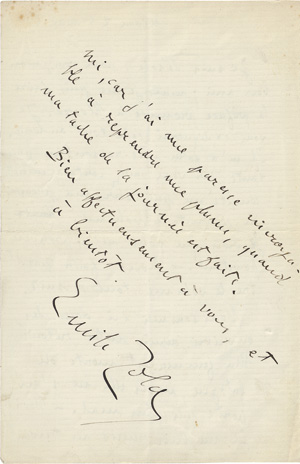 mi, car j'ai une paresse incroya-
ble à reprendre une plume, quand
ma tache de la journée est faite.
Bien affectueusement à vous, et
à bientôt.
Emile Zola